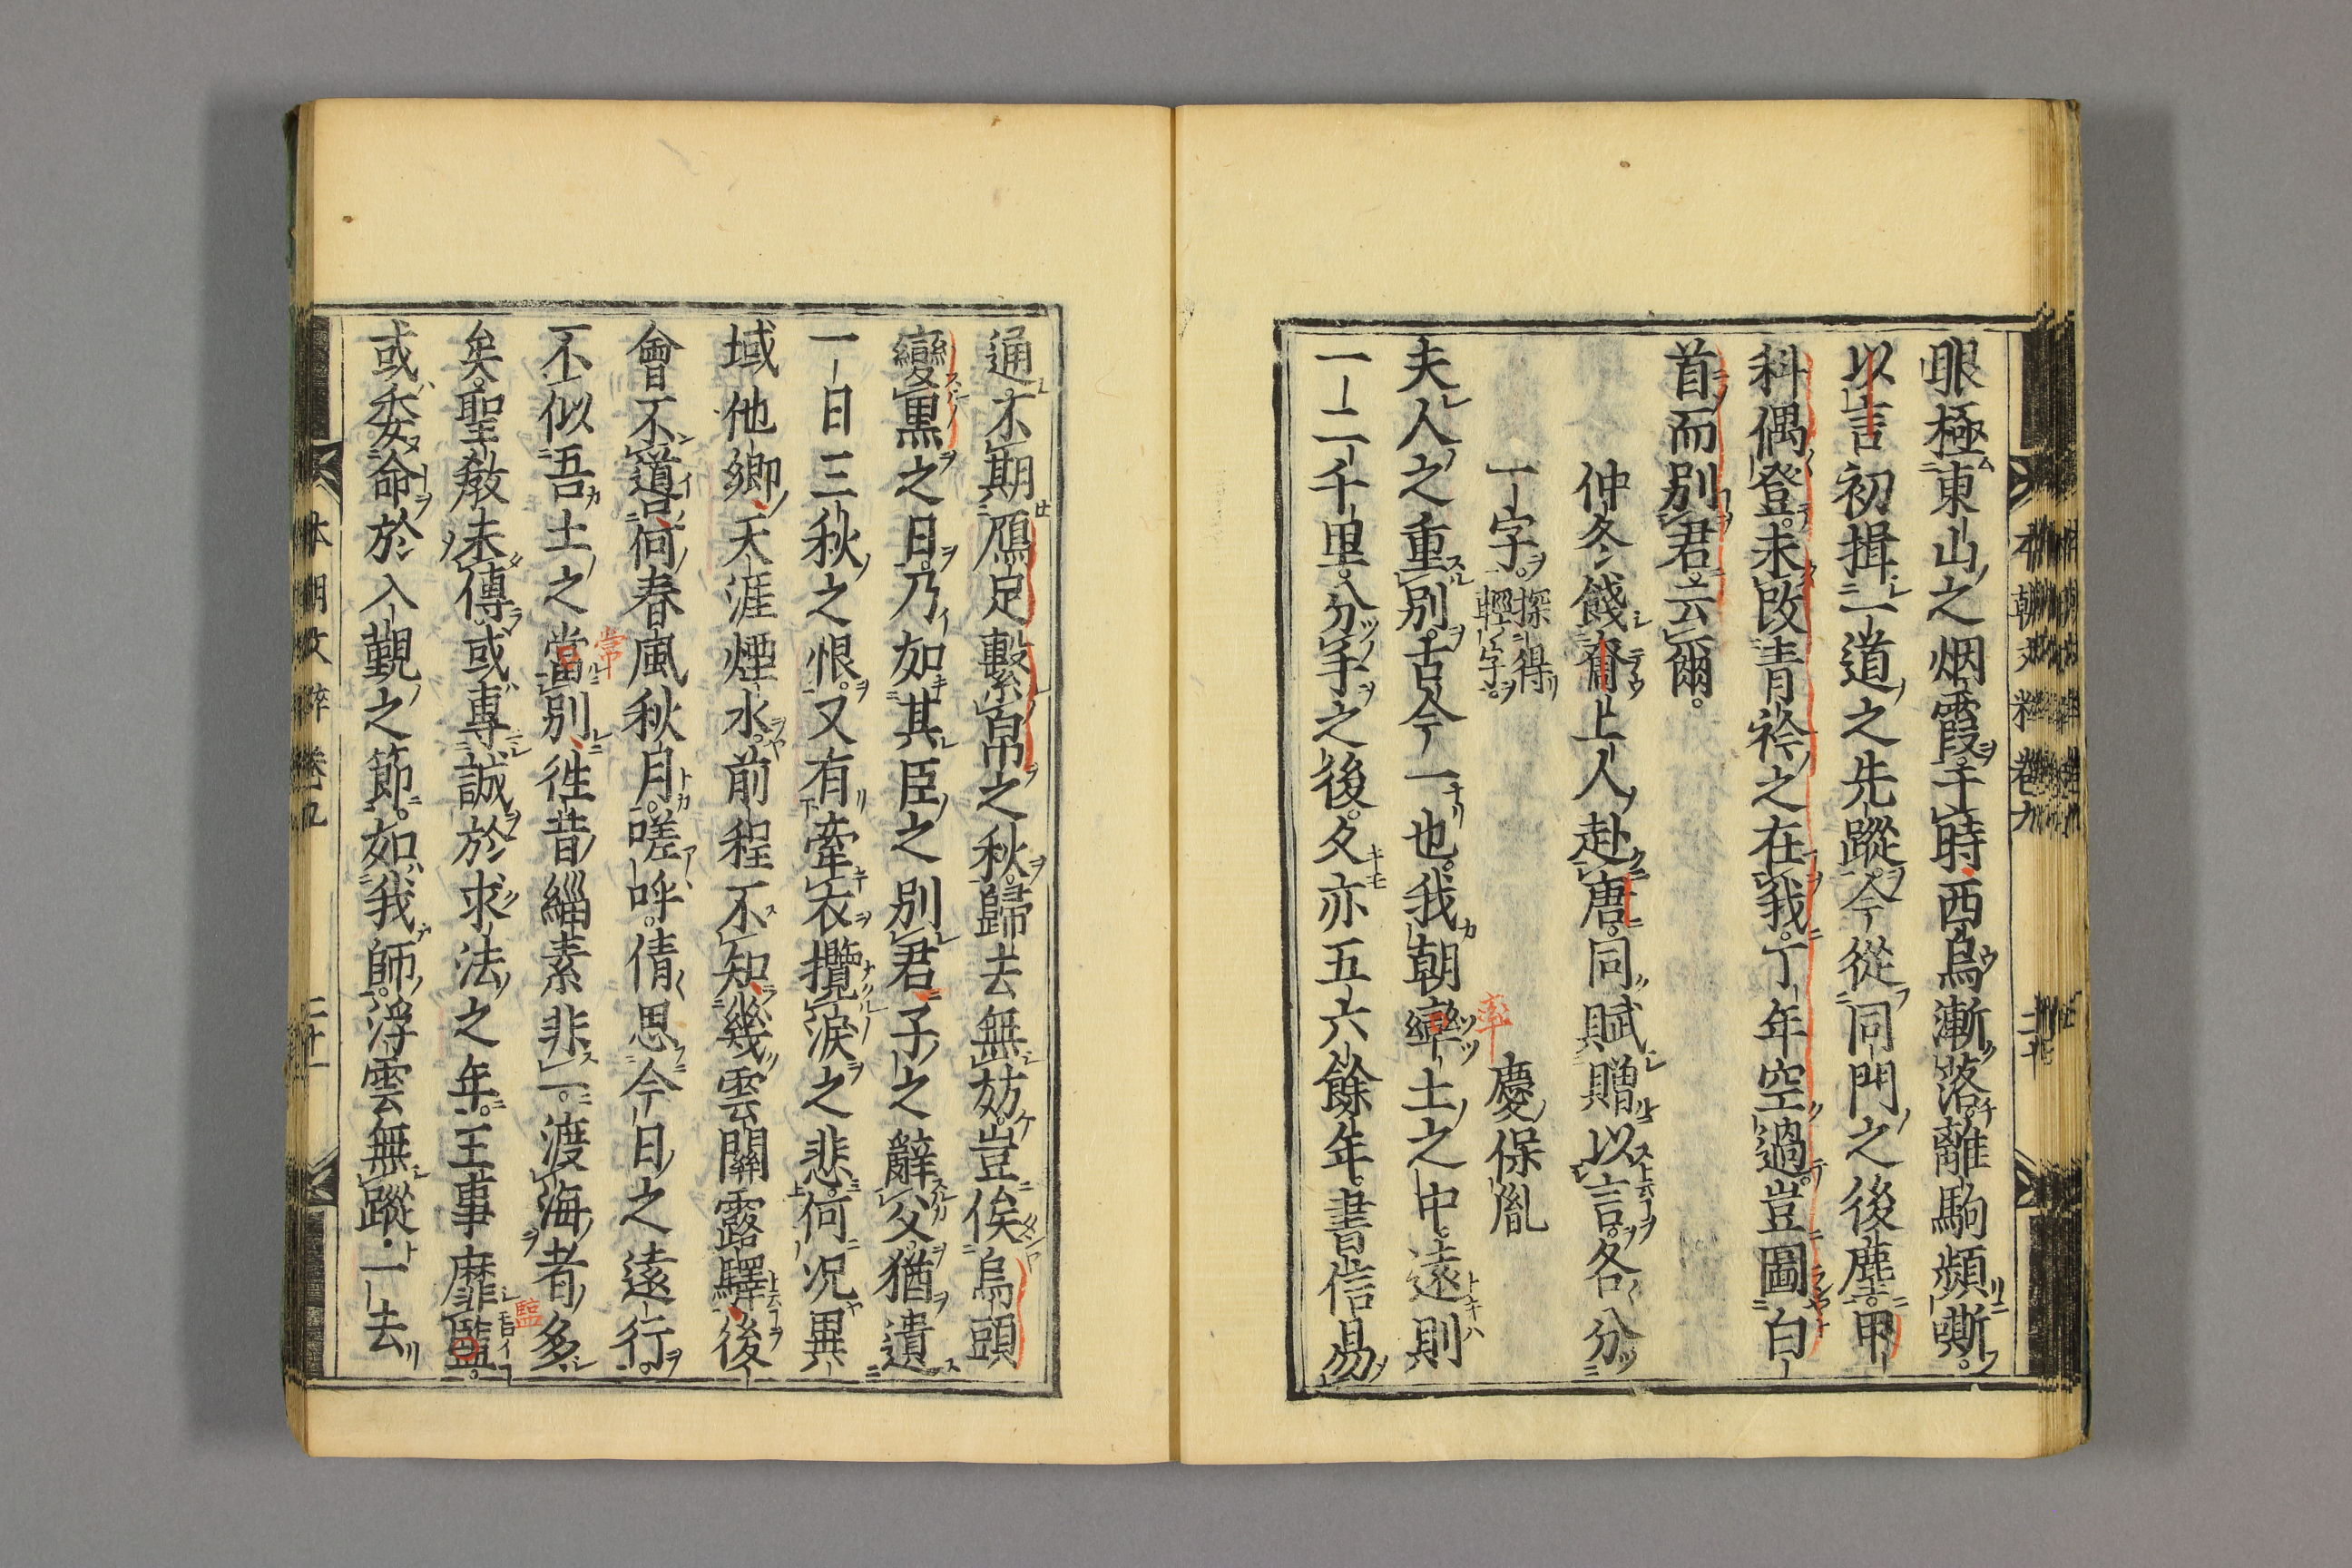 眼極東山之烟霞于時西烏漸落離駒頻嘶
以言初揖二道之先蹤今從同門之後塵甲
科偶登未改青衿之在我丁年空過豈圖白
首而別君云爾
仲冬餞奝上人赴唐同賦贈以言各分
一字探得輕字
慶保胤
夫人之重別古今一也我朝率土之中遠則
一二千里分手之後夕亦五六餘年書信易
通不期鴈足繫帛之秋歸去無妨豈俟烏頭
變黒之日乃如其臣之別君子之辭父猶遺
一日三秋之恨又有牽衣攬淚之悲何況異
域他郷天涯煙水前程不知幾雲關露驛後
會不噵何春風秋月嗟呼倩思今日之遠行
不似吾土之當別徃昔緇素非一渡海者多
常
矣聖教未傳或專誠於求法之年王事靡盬
監
或委命於入覲之節如我師浮雲無蹤一去
本朝文粹 卷九
二十一